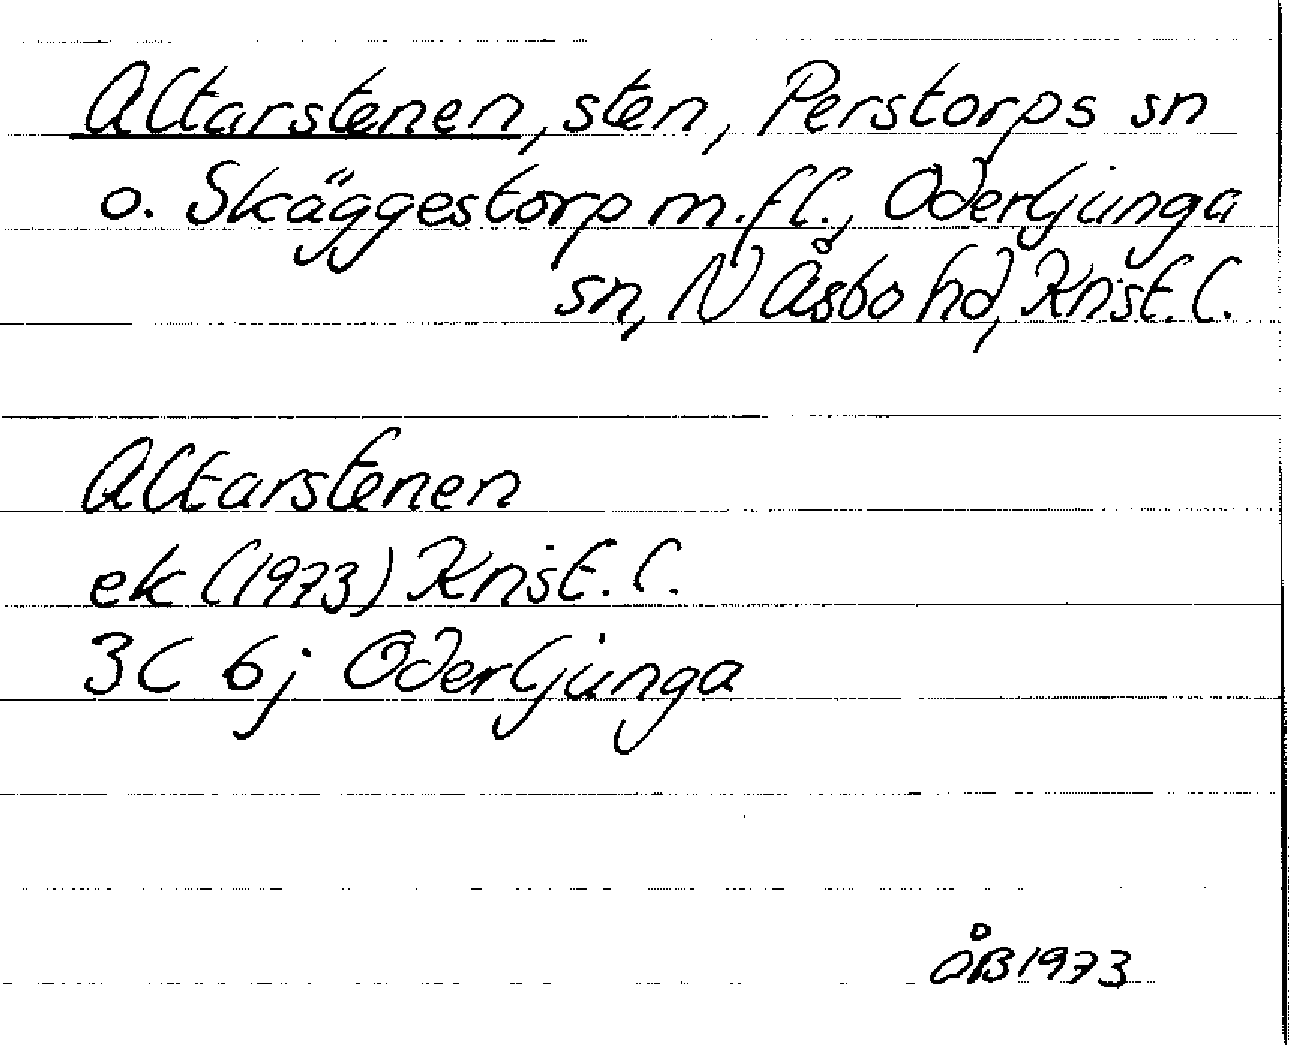 Altarstenen, sten, Perstorps sn
o. Skäggestorp m.fl., Oderljunga
sn, N Åsbo hd, Krist. l.
Altarstenen
ek (1973) Krist. l.
3C 6j Oderljunga
ÅB 1973